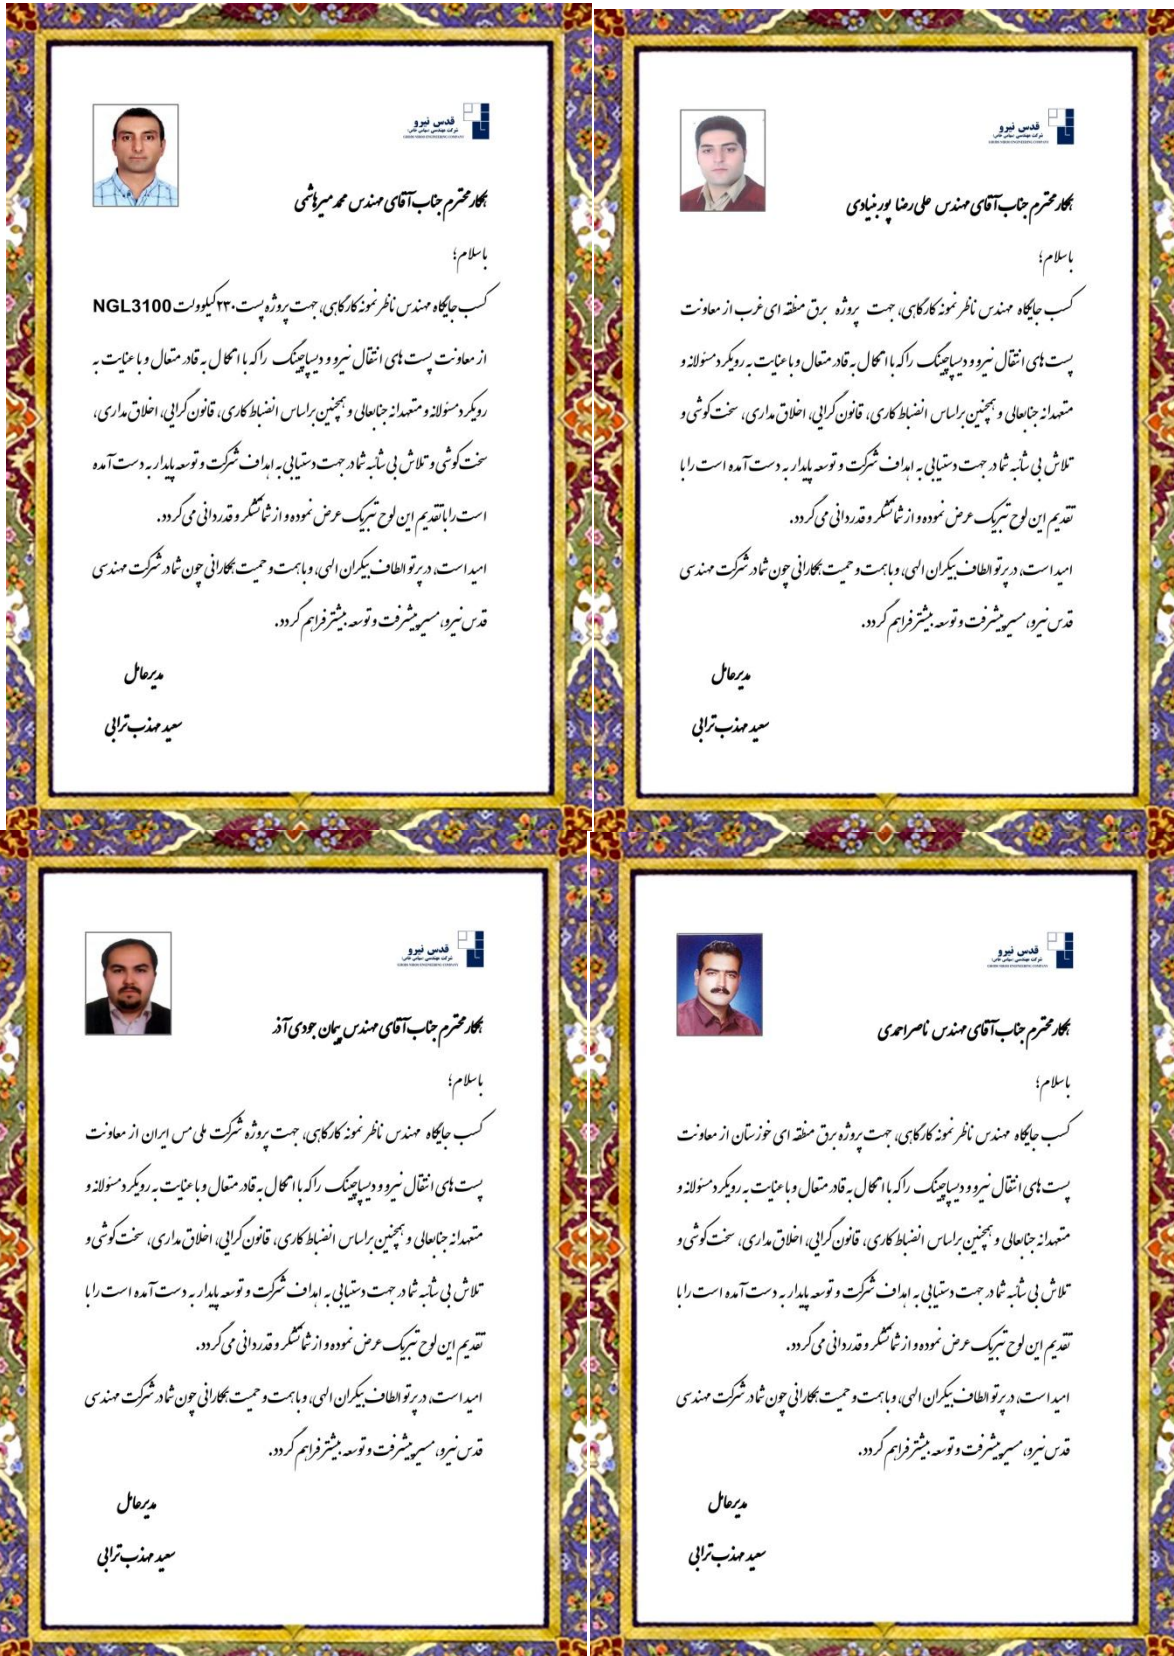 قدس نیرو
شرکت مهندسی (سهامی خاص)
GHODS NIROO ENGINEERING COMPANY
همکار محترم جناب آقای مهندس علی رضا پور بنیادی
با سلام؛
کسب جایگاه مهندس ناظر نمونه کارگاهی، جهت پروژه برق منطقه ای غرب از معاونت
پست های انتقال نیرو و دیسپاچینگ را که با اتکال به قادر متعال و با عنایت به رویکرد مسئولانه و
متعهدانه جنابعالی و همچنین براساس انضباط کاری، قانون گرایی، اخلاق مداری، سخت کوشی و
تلاش بی شائبه شما در جهت دستیابی به اهداف شرکت و توسعه پایدار به دست آمده است را با
تقدیم این لوح تبریک عرض نموده و از شما تشکر و قدردانی می گردد.
امید است، در پرتو الطاف بیکران الهی، و با همت و حمیت همکارانی چون شما در شرکت مهندسی
قدس نیرو، مسیر پیشرفت و توسعه بیشتر فراهم گردد.
مدیرعامل
سعید مهذب ترابی
قدس نیرو
شرکت مهندسی (سهامی خاص)
GHODS NIROO ENGINEERING COMPANY
همکار محترم جناب آقای مهندس محمد میرهاشمی
با سلام؛
کسب جایگاه مهندس ناظر نمونه کارگاهی، جهت پروژه پست ۲۳۰ کیلوولت NGL3100
از معاونت پست های انتقال نیرو و دیسپاچینگ را که با اتکال به قادر متعال و با عنایت به
رویکرد مسئولانه و متعهدانه جنابعالی و همچنین براساس انضباط کاری، قانون گرایی، اخلاق مداری،
سخت کوشی و تلاش بی شائبه شما در جهت دستیابی به اهداف شرکت و توسعه پایدار به دست آمده
است را با تقدیم این لوح تبریک عرض نموده و از شما تشکر و قدردانی می گردد.
امید است، در پرتو الطاف بیکران الهی، و با همت و حمیت همکارانی چون شما در شرکت مهندسی
قدس نیرو، مسیر پیشرفت و توسعه بیشتر فراهم گردد.
مدیرعامل
سعید مهذب ترابی
قدس نیرو
شرکت مهندسی (سهامی خاص)
GHODS NIROO ENGINEERING COMPANY
همکار محترم جناب آقای مهندس ناصر احمدی
با سلام؛
کسب جایگاه مهندس ناظر نمونه کارگاهی، جهت پروژه برق منطقه ای خوزستان از معاونت
پست های انتقال نیرو و دیسپاچینگ را که با اتکال به قادر متعال و با عنایت به رویکرد مسئولانه و
متعهدانه جنابعالی و همچنین براساس انضباط کاری، قانون گرایی، اخلاق مداری، سخت کوشی و
تلاش بی شائبه شما در جهت دستیابی به اهداف شرکت و توسعه پایدار به دست آمده است را با
تقدیم این لوح تبریک عرض نموده و از شما تشکر و قدردانی می گردد.
امید است، در پرتو الطاف بیکران الهی، و با همت و حمیت همکارانی چون شما در شرکت مهندسی
قدس نیرو، مسیر پیشرفت و توسعه بیشتر فراهم گردد.
مدیرعامل
سعید مهذب ترابی
قدس نیرو
شرکت مهندسی (سهامی خاص)
GHODS NIROO ENGINEERING COMPANY
همکار محترم جناب آقای مهندس پیمان جودی آذر
با سلام؛
کسب جایگاه مهندس ناظر نمونه کارگاهی، جهت پروژه شرکت ملی مس ایران از معاونت
پست های انتقال نیرو و دیسپاچینگ را که با اتکال به قادر متعال و با عنایت به رویکرد مسئولانه و
متعهدانه جنابعالی و همچنین براساس انضباط کاری، قانون گرایی، اخلاق مداری، سخت کوشی و
تلاش بی شائبه شما در جهت دستیابی به اهداف شرکت و توسعه پایدار به دست آمده است را با
تقدیم این لوح تبریک عرض نموده و از شما تشکر و قدردانی می گردد.
امید است، در پرتو الطاف بیکران الهی، و با همت و حمیت همکارانی چون شما در شرکت مهندسی
قدس نیرو، مسیر پیشرفت و توسعه بیشتر فراهم گردد.
مدیرعامل
سعید مهذب ترابی